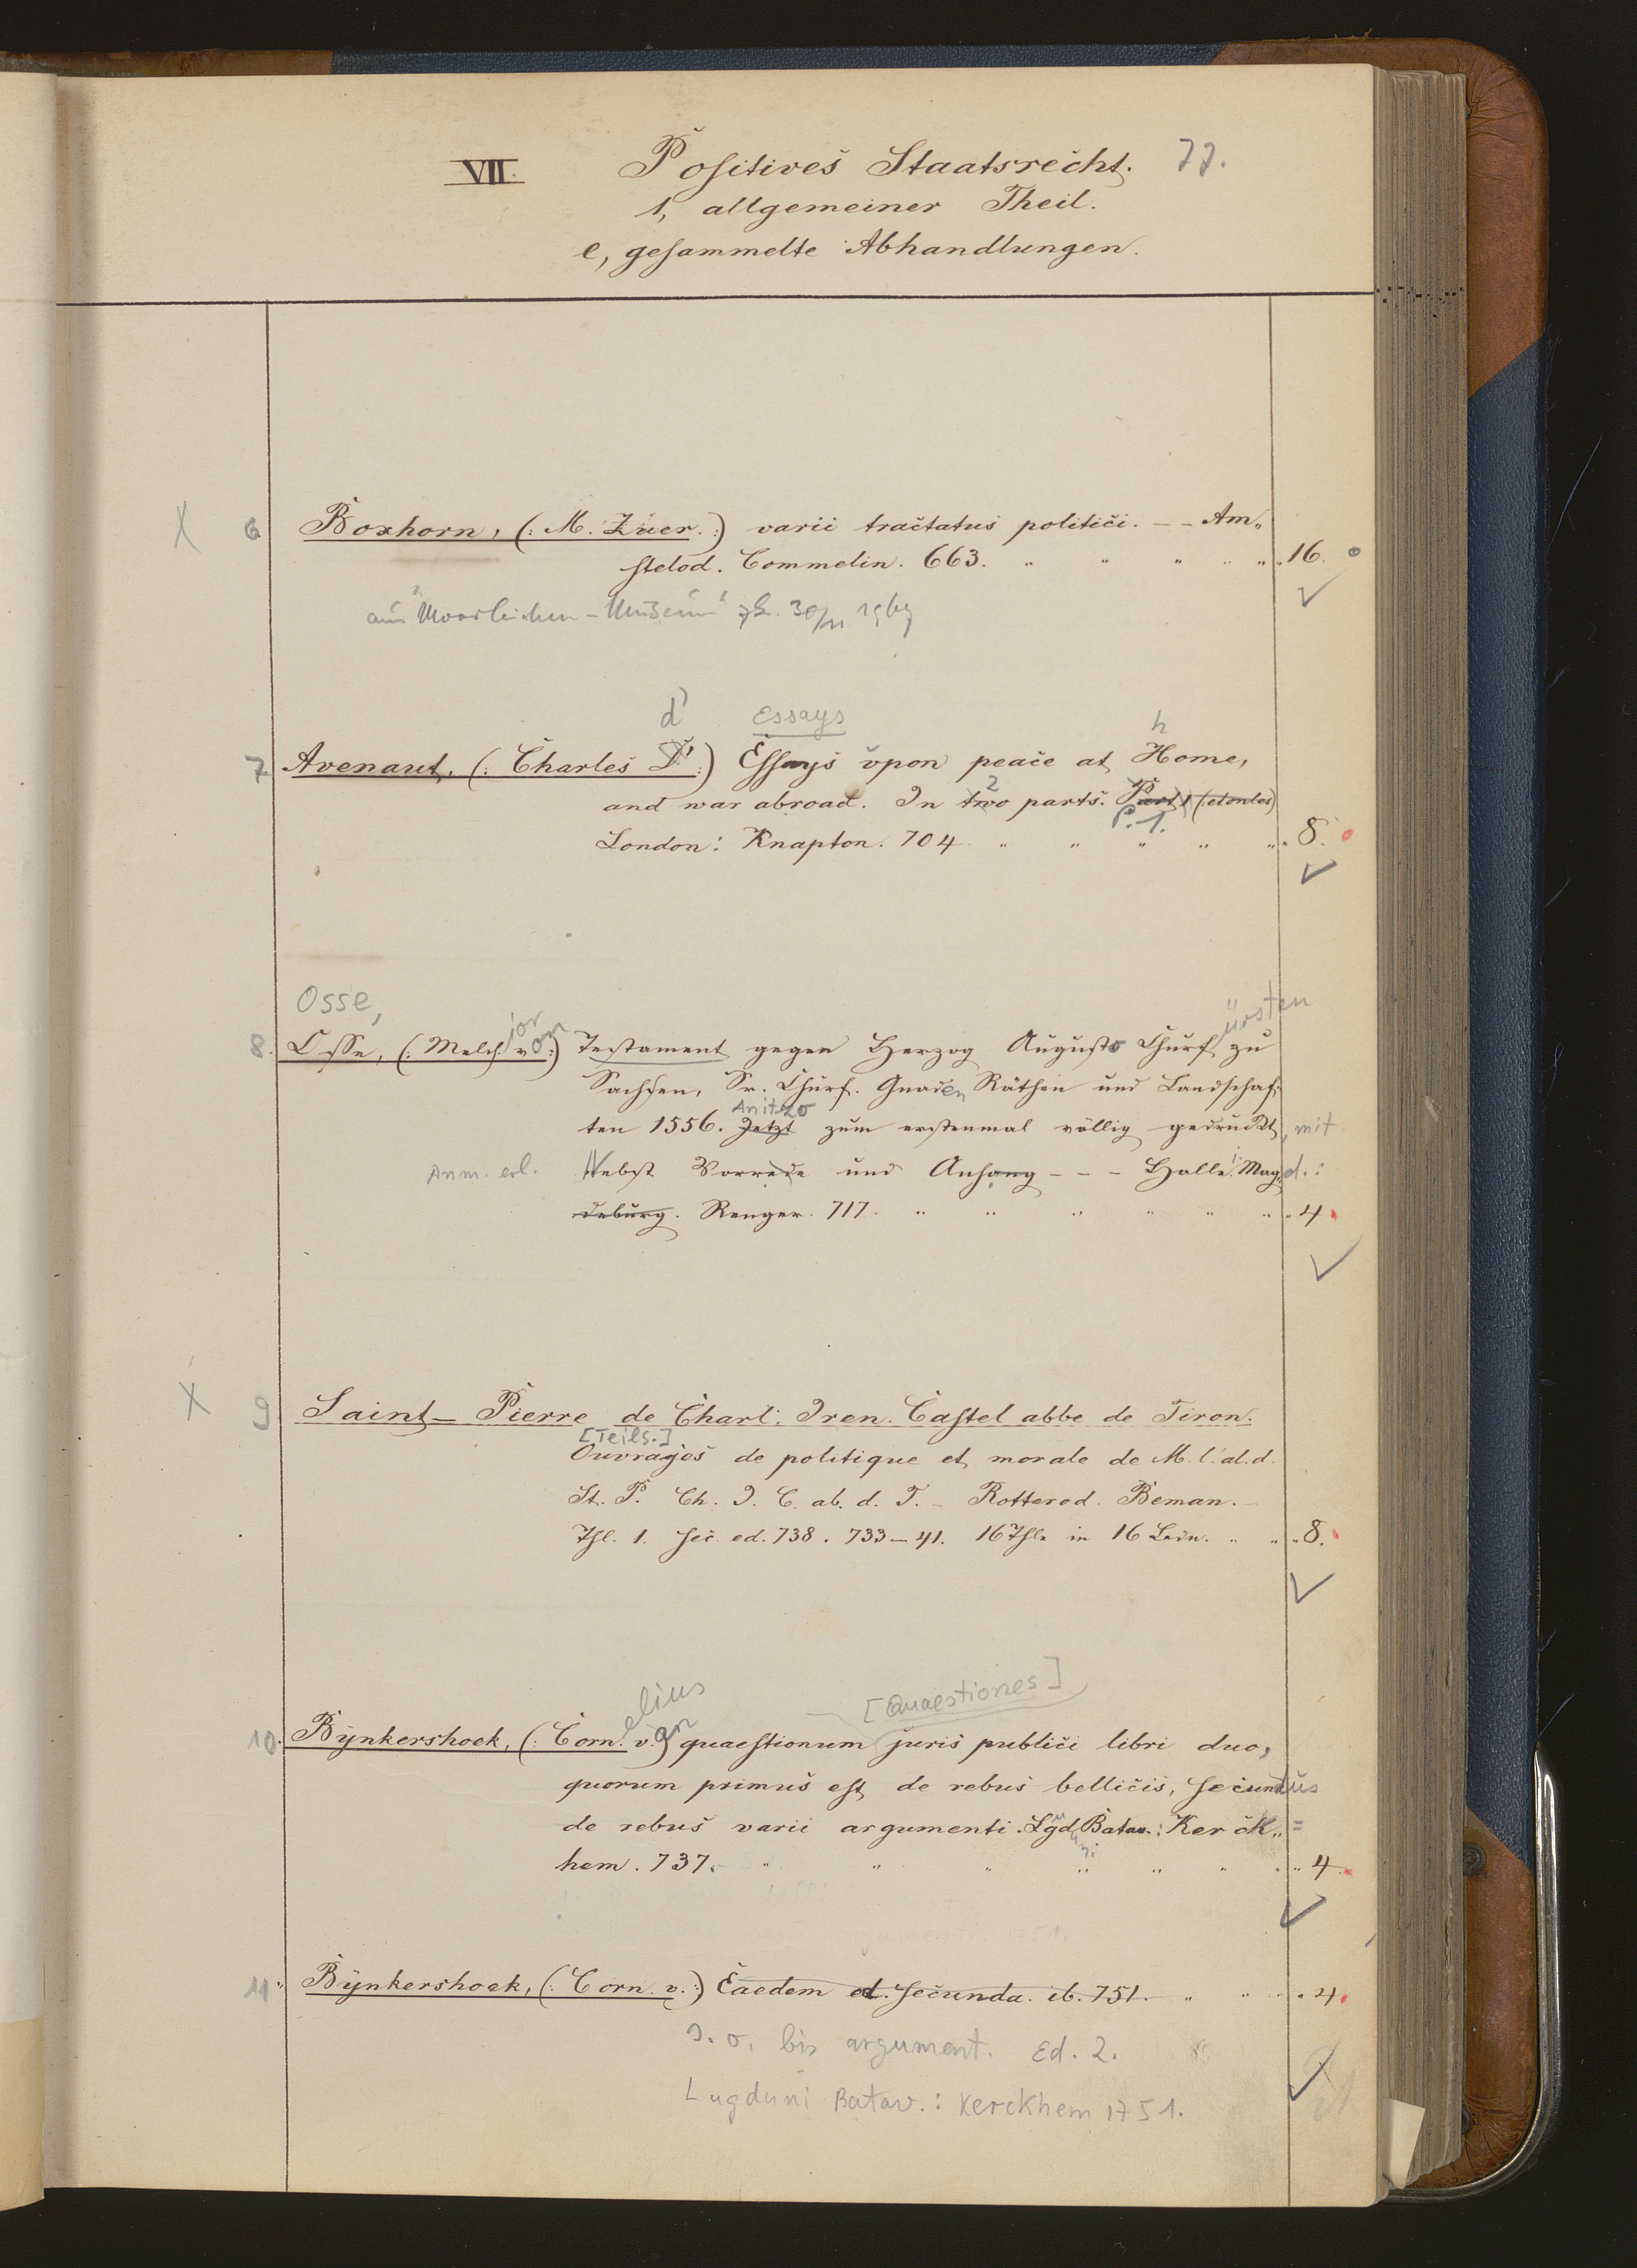 VII. Positives Staatsrecht. 77.
1, allgemeiner Theil.
e, gesammelte Abhandlungen.
X 6 Boxhorn, (: M. Zuer. :) varii tractatus politici. – – Am„
stelod. Commelin. 663. „ „ „ „ „ 16.
aus 30/11 1967
d' essays h
7. Avenaut, (: Charles D' :) Essays upon peace at Home,
2
and war abroad. In two parts. Part 1
P. 1.
London: Knapton. 704. „ „ „ „ „ 8.
Osse, ior ürsten
8. Osse, (: Melch. von :) Testament gegen Herzog Augusto Churf. zu
Sachsen, Sr. Churf. Gnaden Räthen und Landschaf„
Anitzo
ten 1556. Jetzt zum erstenmal völlig gedruckt, mit
Anm. erl. Nebst Vorrede und Anhang – – – Halle i. Magd.:
deburg. Renger. 717. „ „ „ „ „ „ 4
X 9 Saint – Pierre de Charl. Iren. Castel abbe de Tiron.
[Teils.]
Ouvrajes de politique et morale de M. l'ab. d.
St. P. Ch. I. C. ab. d. T. – Rotterod. Beman. –
Thl. 1. sec. ed. 738. 733–41. 16 Thle in 16 Bdn. „ „ 8.
elius [Quaestiones]
10. Bynkershoek, (: Corn. van :) quaestionum juris publici libri duo,
quorum primus est de rebus bellicis, secundus
de rebus varii argumenti. Lugd Batav.: Kerck„=
uni
hem. 737. „ „ „ „ „ „ 4.
11. Bynkershoek, (: Corn. v. :) Eaedem ed. secunda. ib. 751. „ „ „ 4.
s. o. bis argument. Ed. 2.
Lugduni Batav.: Kerckhem 1751.